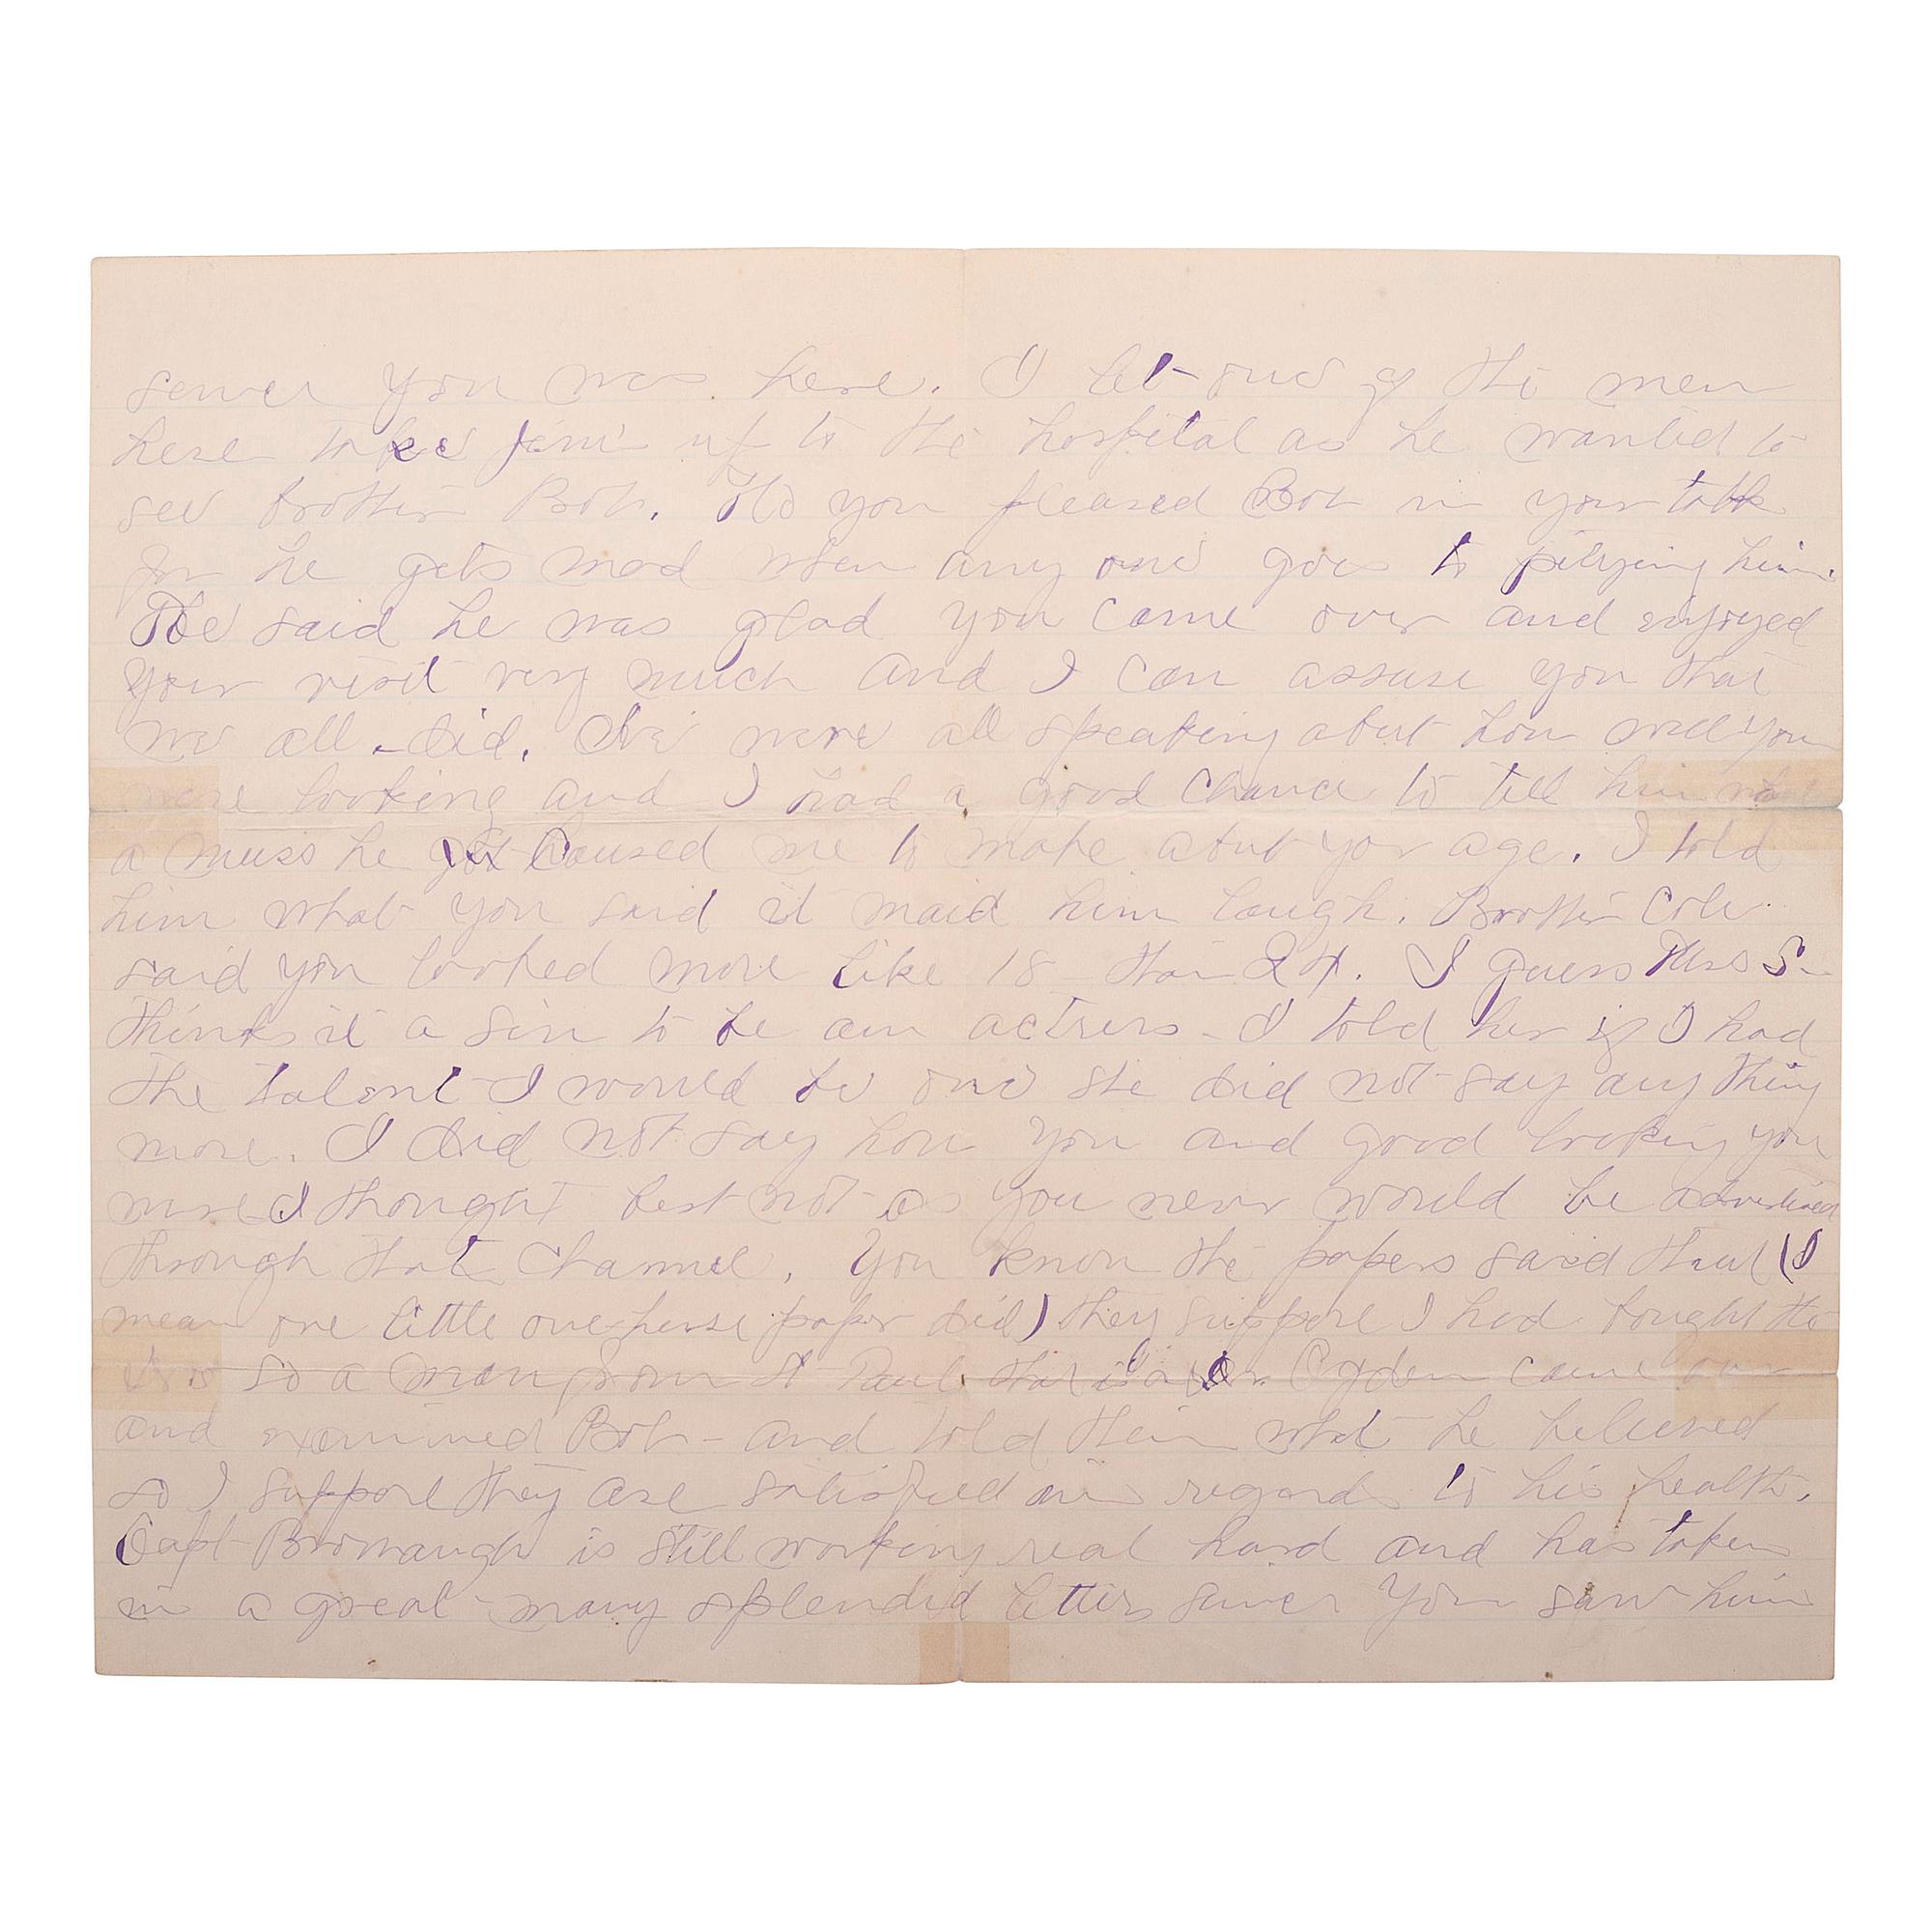 sence you was here. I let one of the men
here take him up to the hospital as he wanted to
see brother Bob. you pleased Bob in your talk
for he gets mad when any one goes to pitying him.
He said he was glad you came over and enjoyed
your visit very much and I can assure you that
we all did. We were all speaking about how well you
were looking and I had a good chance to tell him
a muss he caused me to make about your age. I told
him what you said it maid him laugh. Brother Cole
said you looked more like 18 than 24. I guess Mrs S—
thinks it a sin to be an actress - I told her if I had
the talent I would be one she did not say any thing
more. I did not say how you and good looking you
were I thought best not as you never would be advertised
through that channel. You know the papers said that (I
mean one little one horse paper did) they suppose I had bought the
so a man from St Paul that is a Ogden came over
and examined Bob - and told them what he believed
so I suppose they are satisfied in regards to his health.
Capt Bronaugh is still working real hard and has taken
in a great many splendid letters sence you saw him